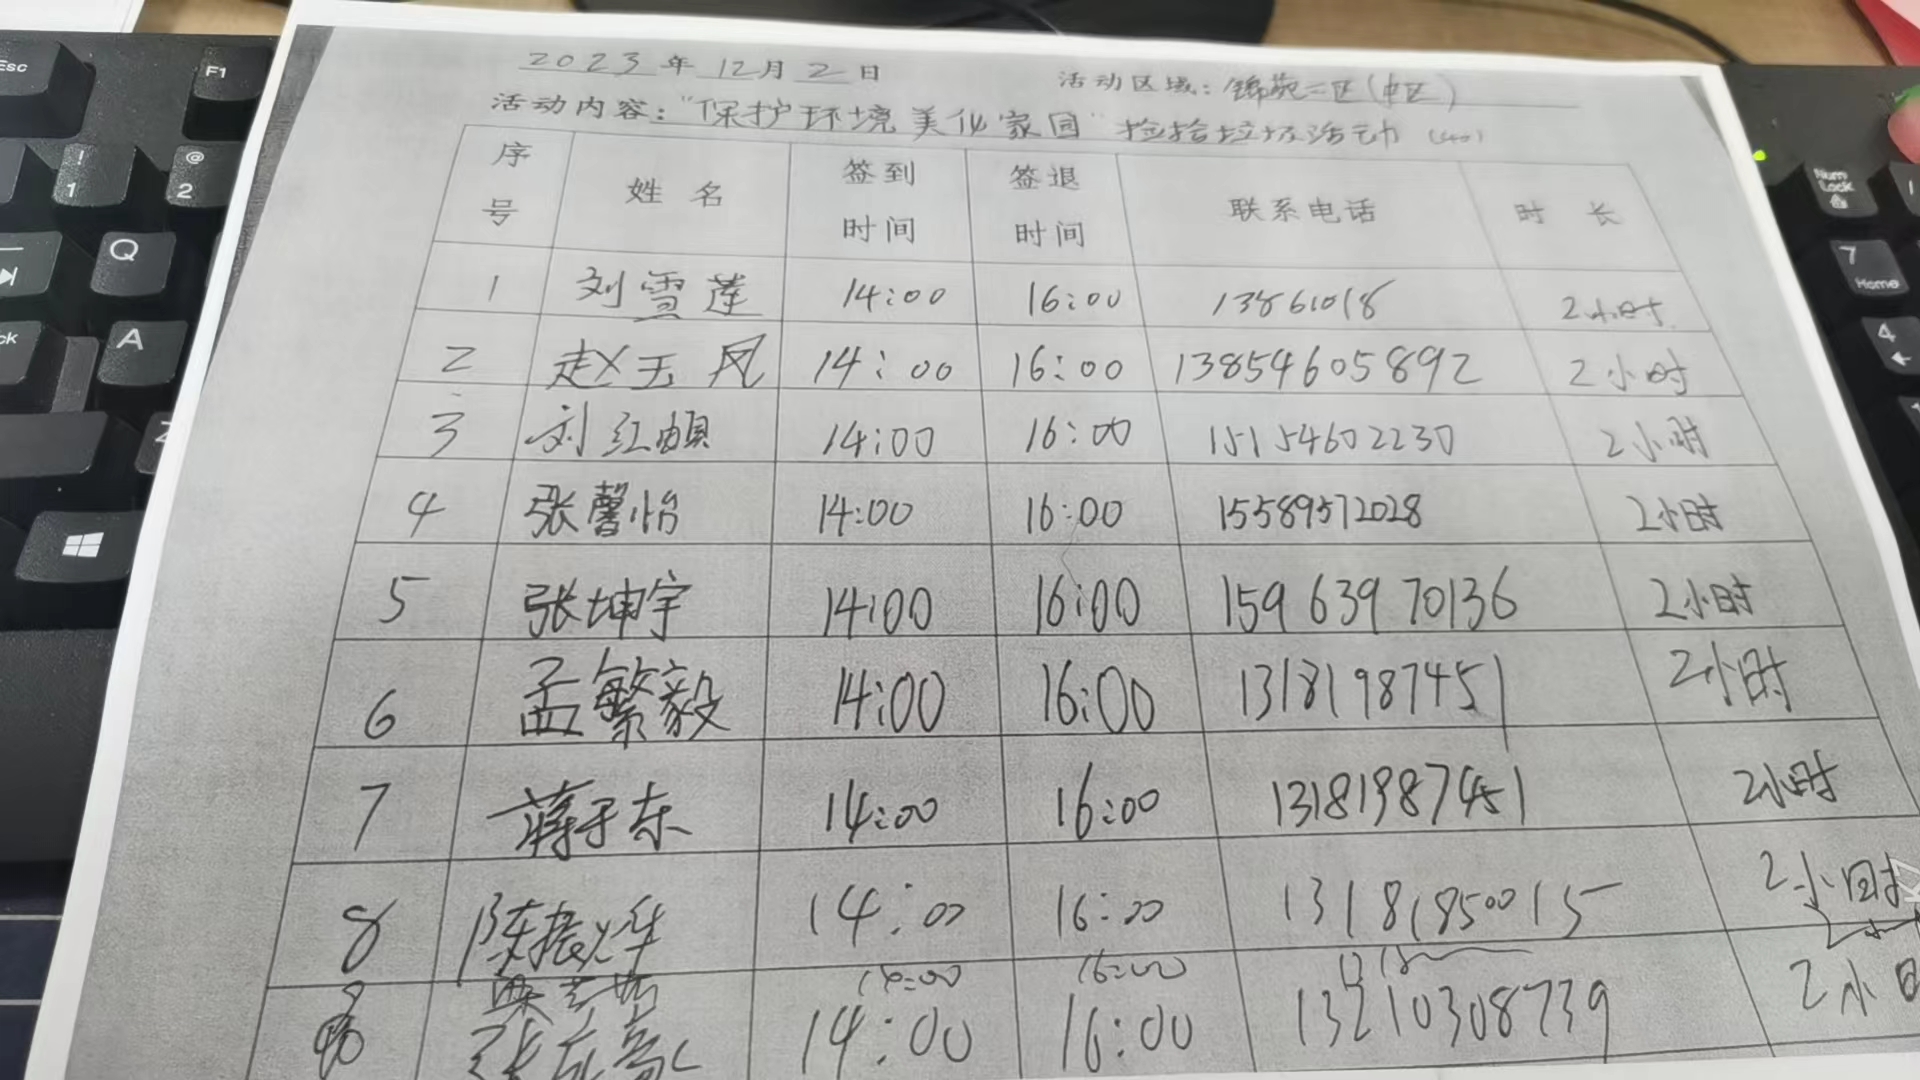 2023年12月2日 活动区域：锦苑二区(中区)
活动内容："保护环境美化家园"捡拾垃圾活动
序号 姓名 签到时间 签退时间 联系电话 时长
1 刘雪莲 14:00 16:00 13861018 2小时
2 赵玉凤 14:00 16:00 13854605892 2小时
3 刘红 14:00 16:00 15154602230 2小时
4 张馨怡 14:00 16:00 15589572028 2小时
5 张坤宇 14:00 16:00 15963970136 2小时
6 孟繁毅 14:00 16:00 13181987451 2小时
7 蒋子东 14:00 16:00 13181987451 2小时
8 陈振烨 14:00 16:00 13181850015 2小时
9 14:00 16:00
张 14:00 16:00 13210308739 2小时
Esc
F1
! 1
@ 2
Q
A
Z
Num Lock
7 Home
4